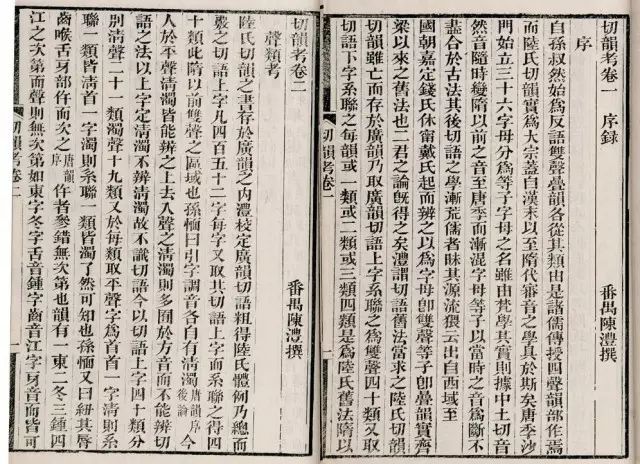 切韻考卷一　序錄
番禺陳澧撰
序
自孫叔然始爲反語雙聲疊韻各從其類由是諸儒傳授四聲韻部作焉
而陸氏切韻實爲大宗蓋自漢末以至隋代審音之學具於斯矣唐季沙
門始立三十六字母分爲等子字母之名雖由梵學其實則據中土切音
然音隨時變隋以前之音至唐季而漸混字母等子以當時之音爲斷不
盡合於古法其後切語之學漸荒儒者昧其源流猥云出自西域至
國朝嘉定錢氏休甯戴氏起而辨之以爲字母卽雙聲等子卽疊韻實齊
梁以來之舊法也二君之論旣得之矣澧謂切語舊法當求之陸氏切韻
切韻雖亡而存於廣韻乃取廣韻切語上字系聯之爲雙聲四十類又取
切語下字系聯之每韻或一類或二類或三類四類是爲陸氏舊法隋以
切韻考卷一
一
切韻考卷二
番禺陳澧撰
聲類考
陸氏切韻之書存於廣韻之內澧校定廣韻切語粗得陸氏體例乃總而
覈之切語上字凡四百五十二字每字又取其切語上字而系聯之得四
十類此隋以前雙聲之區域也孫愐曰引字調音各自有清濁唐韻序後論今
人於平聲清濁皆能辨之上去入聲之清濁則多囿於方音而不能辨切
語之法以上字定清濁不辨清濁故不識切語今以切語上字四十類分
別清聲二十一類濁聲十九類又於每類取平聲字爲首首一字清則系
聯一類皆清首一字濁則系聯一類皆濁了然可知也孫愐又曰紐其脣
齒喉舌牙部仵而次之唐韻序仵者參錯無次第也韻有一東二冬三鍾四
江之次第而聲則無次第如東字冬字舌音鍾字齒音江字牙音而皆可
切韻考卷二
一